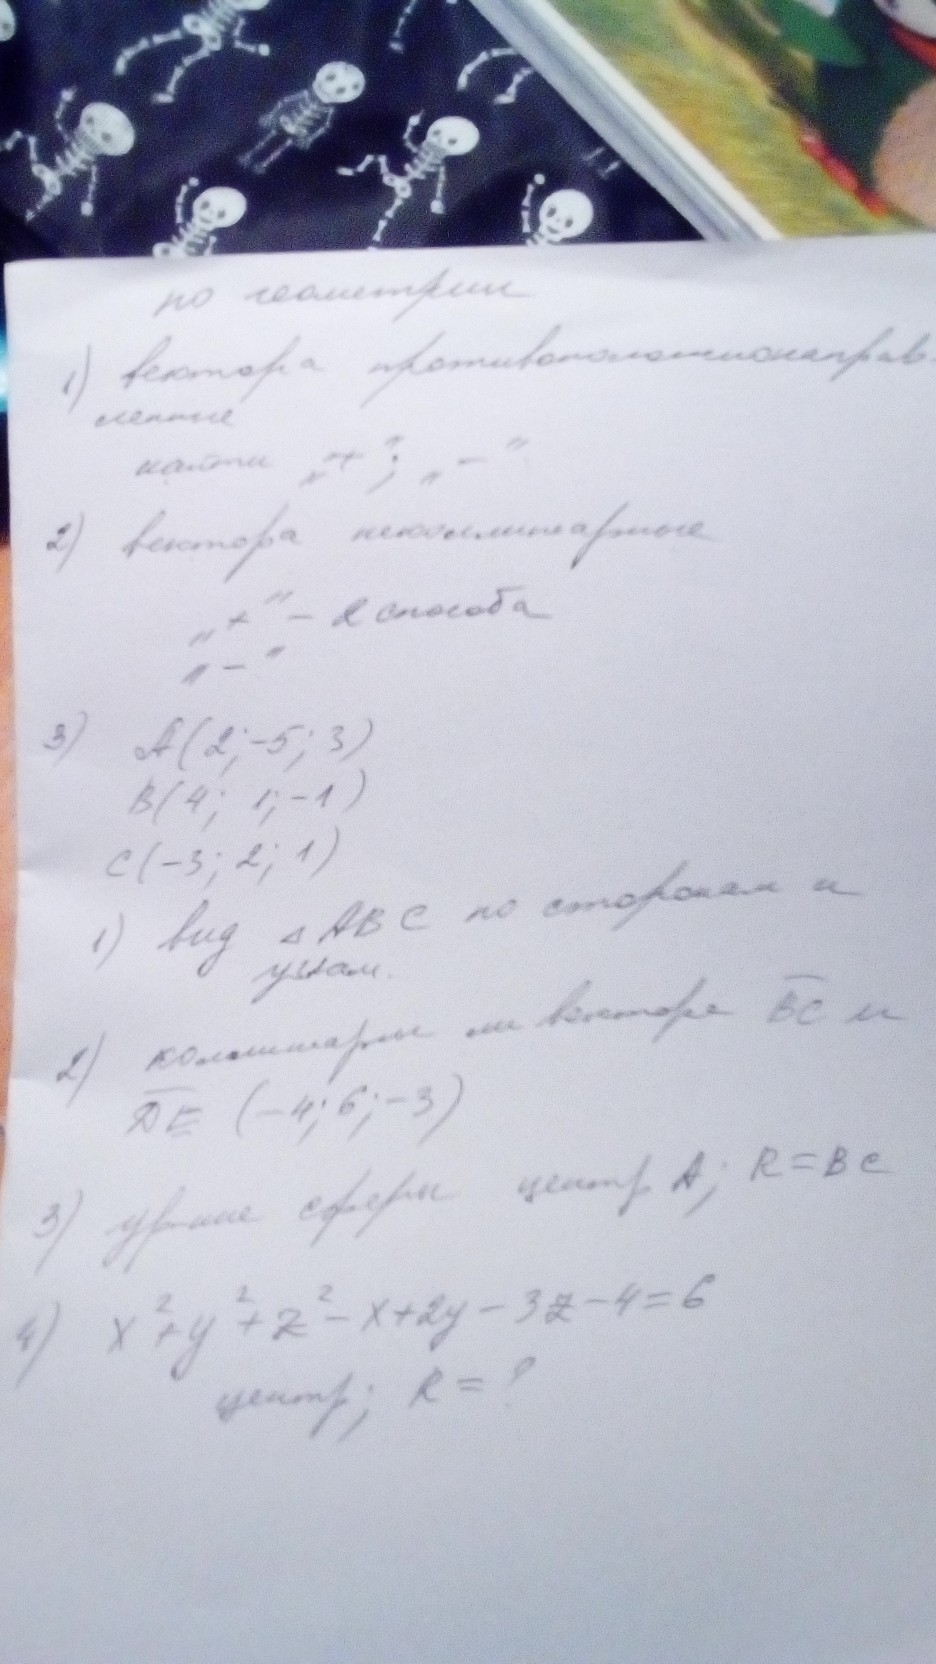 по геометрии
1) вектора противоположнонаправ-
ленные
найти „+”; „-”
2) вектора неколлинеарные
„+” - 2 способа
„-”
3) A(2;-5; 3)
B(4; 1;-1)
C(-3; 2; 1)
1) вид △ ABC по сторонам и
углам.
2) коллинеарны ли вектора BC и
DE (-4; 6; -3)
3) ур-ние сферы центр A; R=BC
4) x²+y²+z²-x+2y-3z-4=6
центр; R=?